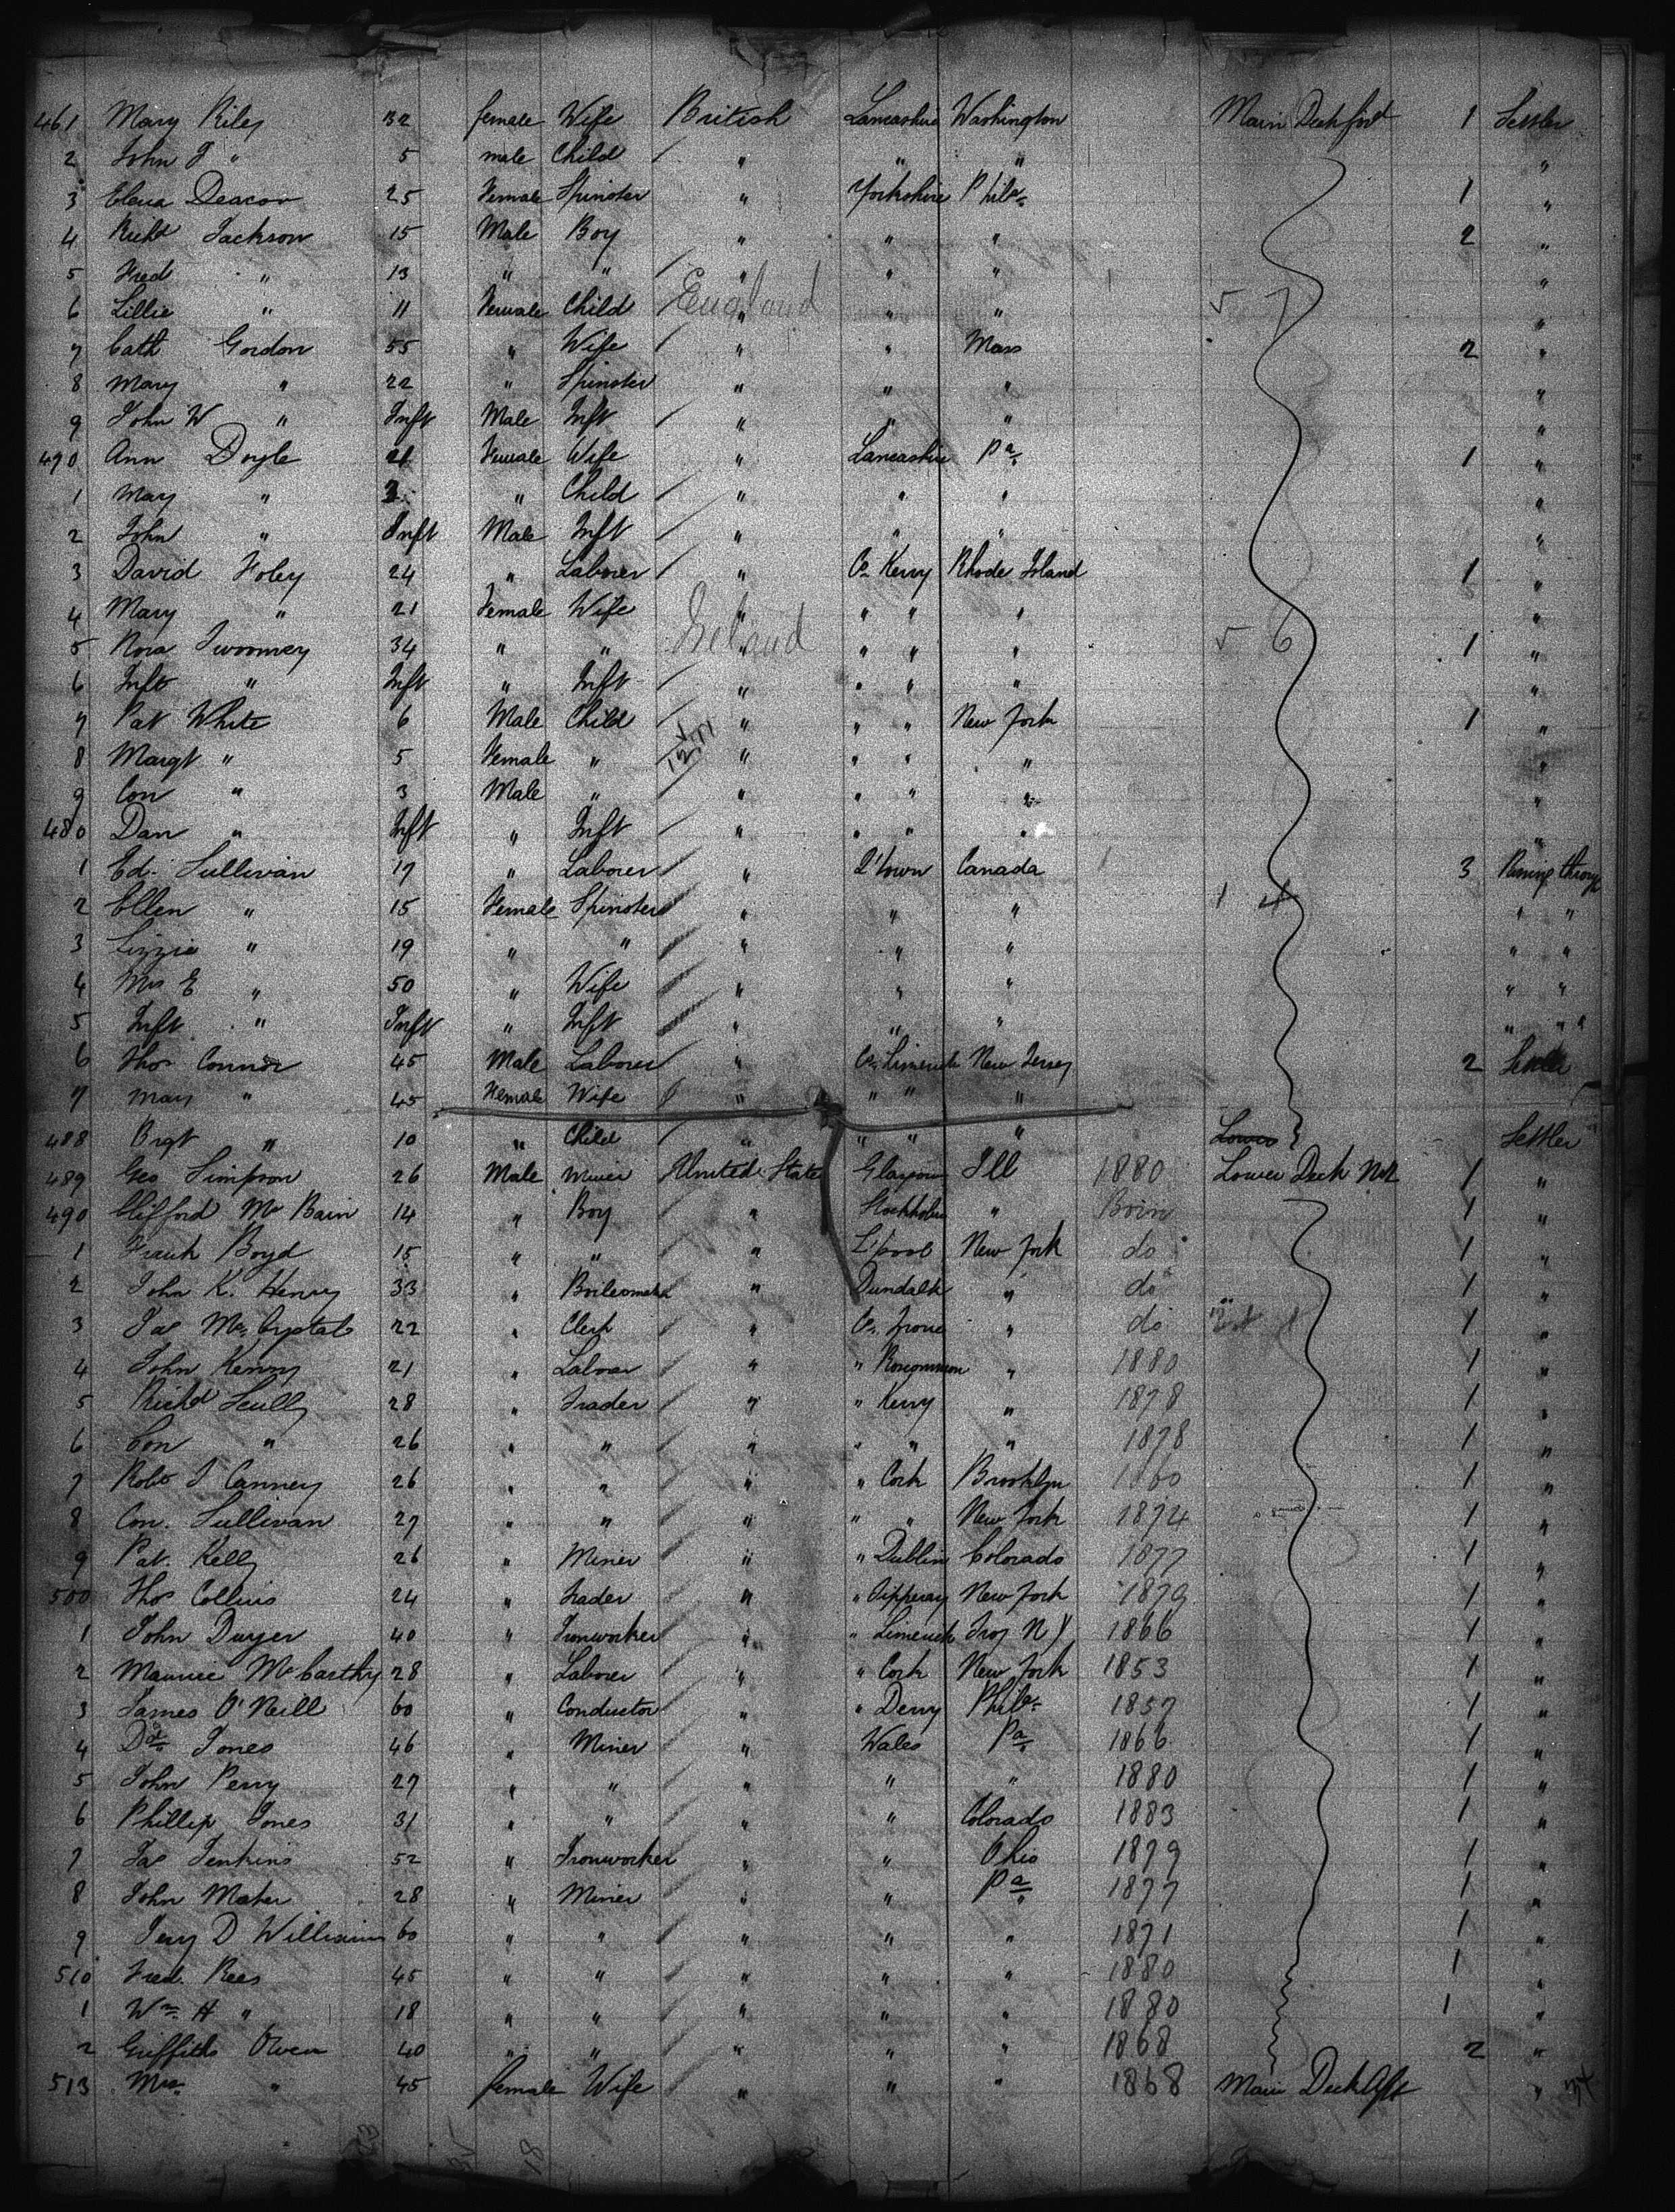 461 Mary Riley 32 female Wife British Lancashire Washington Main Deck for'd 1 Settler
2 John J " 5 male Child " " " "
3 Elena Deacon 25 Female Spinster " Yorkshire Phila 1 "
4 Richd Jackson 15 Male Boy " " " 2 "
5 Fred " 13 " " " " " "
6 Lillie " 11 Female Child England " " " 5 7 "
7 Cath Gordon 55 " Wife " " Mass 2 "
8 Mary " 22 " Spinster " " " "
9 John W " Inft Male Inft " " " "
470 Ann Doyle 21 Female Wife " Lancashire Pa 1 "
1 Mary " " Child " " " "
2 John " Inft Male Inft " " " "
3 David Foley 24 " Laborer " Co Kerry Rhode Island 1 "
4 Mary " 21 Female Wife " " " " "
5 Nora Twoomey 34 " " Ireland " " " " 5 6 1 "
6 Inft " Inft " Inft " " " " "
7 Pat White 6 Male Child " " " New York 1 "
8 Margt " 5 Female " " " " " "
9 Con " 3 Male " " " " " "
480 Dan " Inft " Inft " " " " "
1 Ed. Sullivan 17 " Laborer " Q'town Canada 3 Passing through
2 Ellen " 15 Female Spinster " " " 1 4 " "
3 Lizzie " 19 " " " " " " "
4 Mrs E " 50 " Wife " " " " "
5 Inft " Inft " Inft " " " " "
6 Thos Connor 45 Male Laborer " Co. Limerick New Jersey 2 Settler
7 Mary " 45 Female Wife " " " "
488 Brgt " 10 " Child " " " " Lower Settler
489 Geo Simpson 26 Male Miner United States Glasgow Ill 1880 Lower Deck No 2 1 "
490 Clifford Mc Bain 14 " Boy " Stockholm " Born 1 "
1 Frank Boyd 15 " " " L'pool New York do 1 "
2 John K. Henry 33 " Boilermaker " Dundalk " do 1 "
3 Jas Mc Crystal 22 " Clerk " Co. Tyrone " do 1 "
4 John Kenny 21 " Laborer " " Roscommon " 1880 1 "
5 Richd Scully 28 " Trader " " Kerry " 1878 1 "
6 Con " 26 " " " " " " 1878 1 "
7 Robt J Canney 26 " " " " Cork Brooklyn 1860 1 "
8 Con. Sullivan 27 " " " " " New York 1874 1 "
9 Pat. Kelly 26 " Miner " " Dublin Colorado 1877 1 "
500 Thos Collins 24 " Trader " " Tipperary New York 1879 1 "
1 John Dwyer 40 " Ironworker " " Limerick Troy N Y 1866 1 "
2 Maurice McCarthy 28 " Laborer " " Cork New York 1853 1 "
3 James O'Neill 60 " Conductor " " Derry Phila 1857 1 "
4 Dd Jones 46 " Miner " Wales Pa 1866 1 "
5 John Perry 27 " " " " " 1880 1 "
6 Phillip Jones 31 " " " " Colorado 1883 1 "
7 Jas Jenkins 52 " Ironworker " " Ohio 1879 1 "
8 John Maher 28 " Miner " " Pa 1877 1 "
9 D Williams 60 " " " " " 1871 1 "
510 Fred. Rees 45 " " " " " 1880 1 "
1 Wm. H " 18 " " " " " 1880 1 "
2 Griffith Owen 40 " " " " " 1868 2 "
513 Mrs. " 45 female Wife " " " 1868 Main Deck Aft "